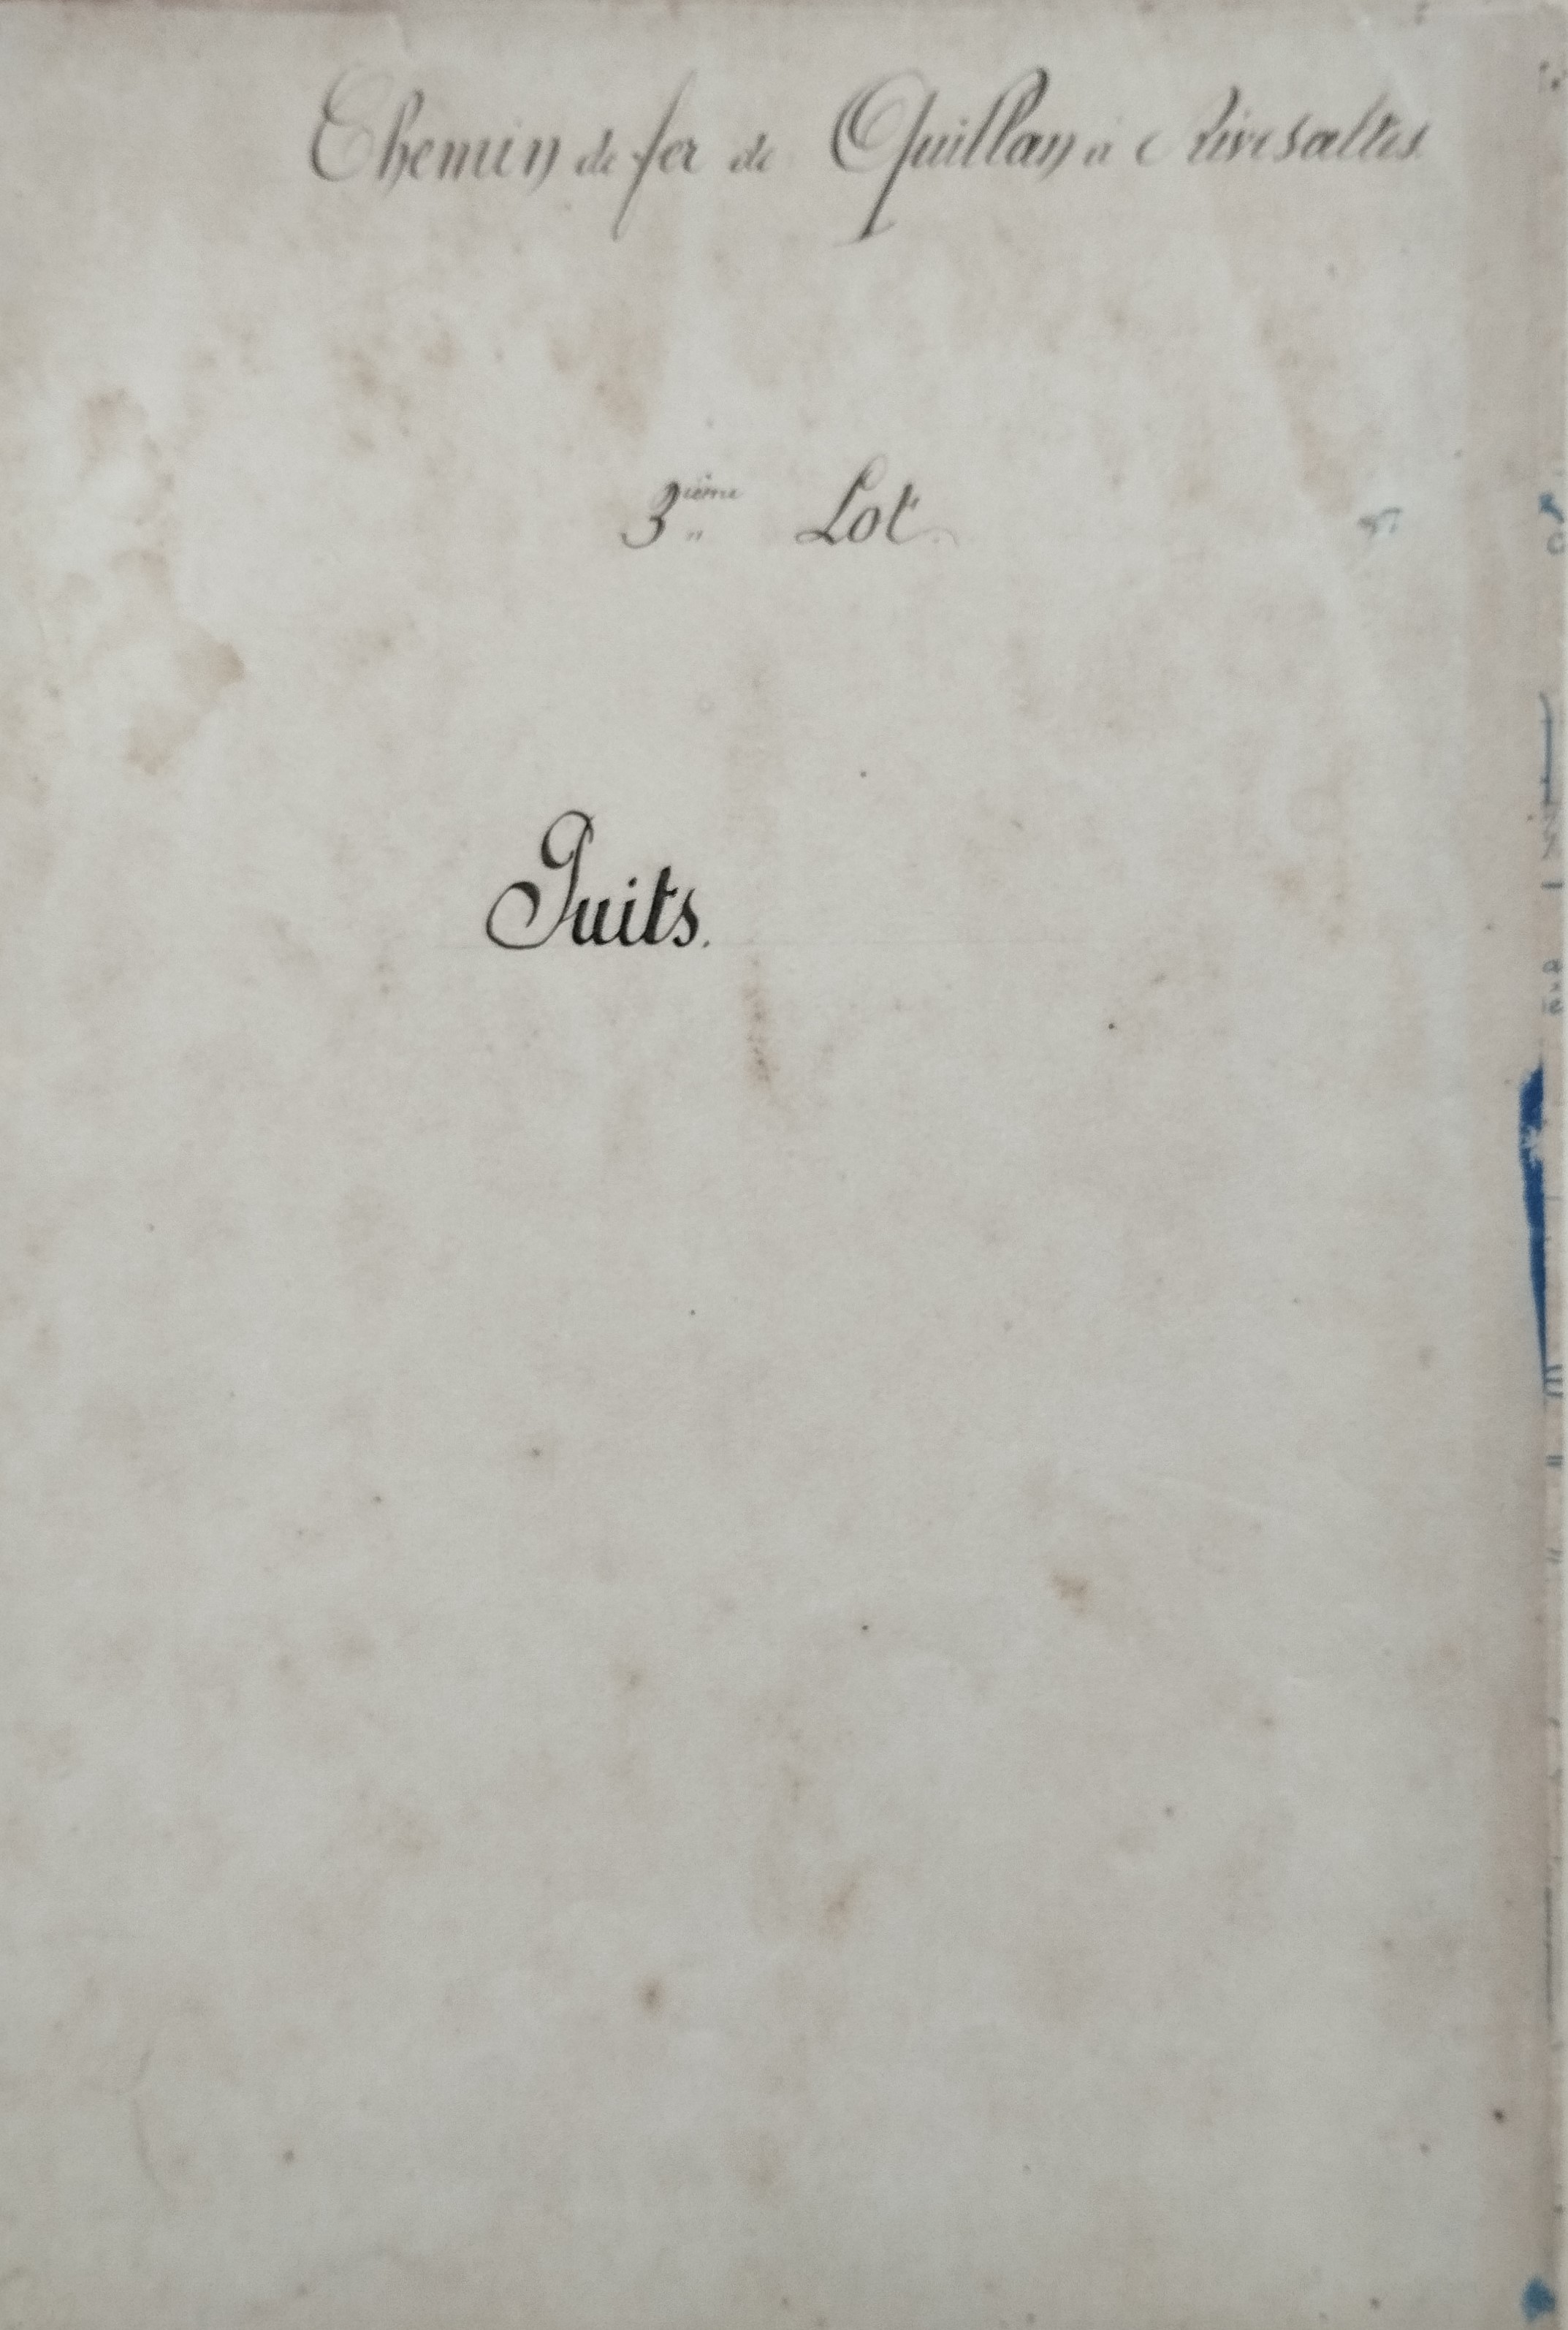 Chemin de fer de Quillan à Rivesaltes
3ième Lot.
Puits.